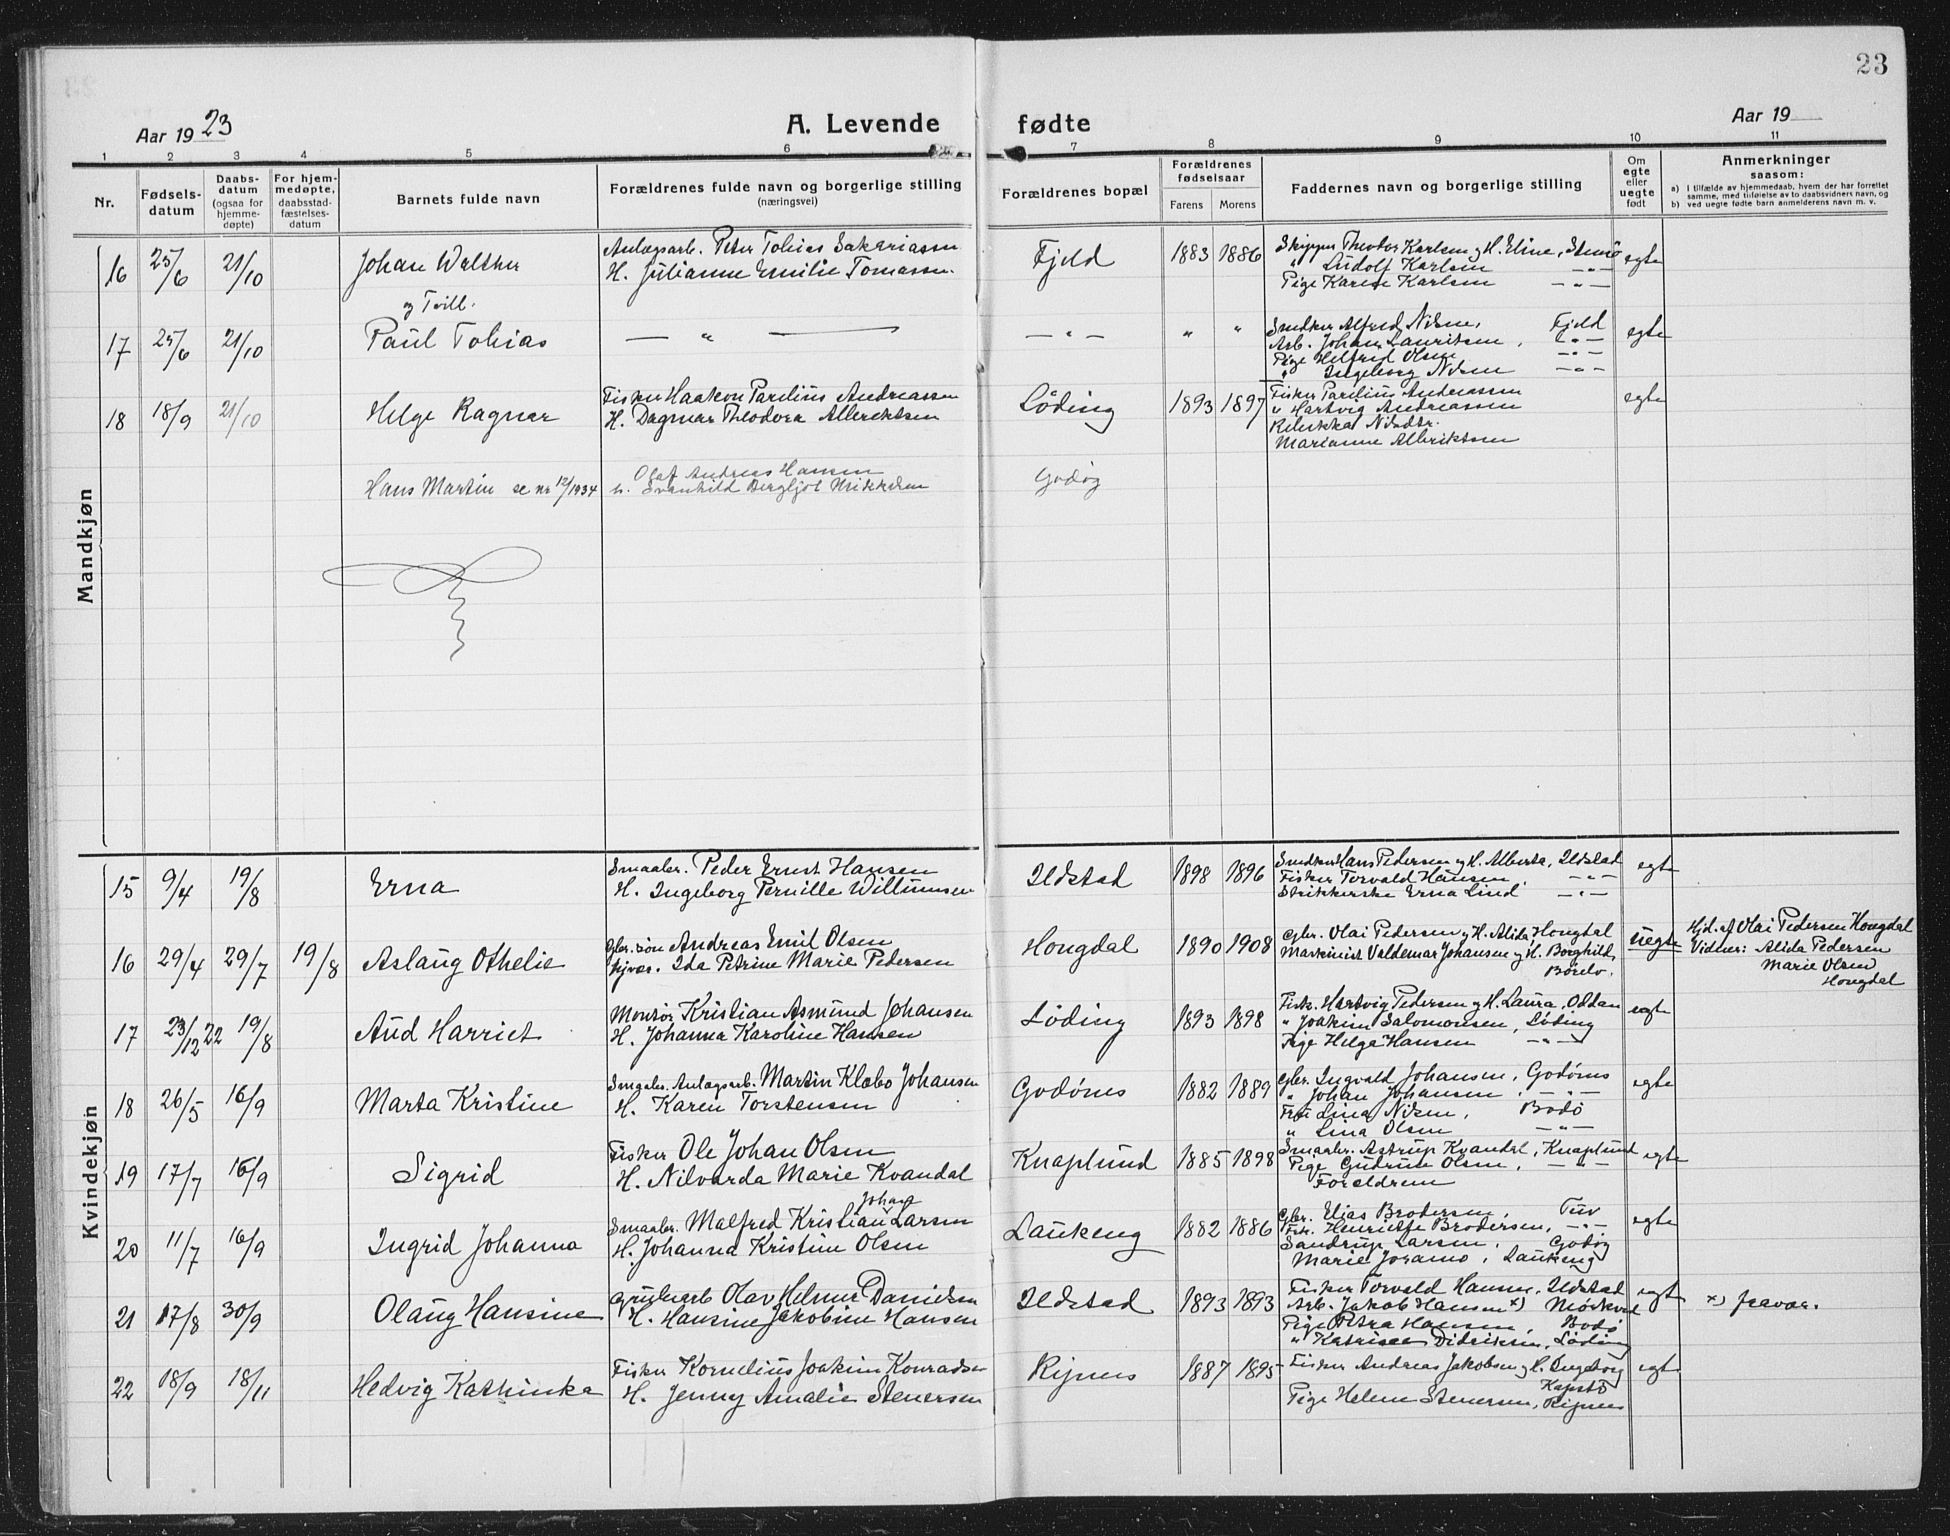 23
Aar 19 23
A. Levende fødte
Aar 19
1 2 3 4 5 6 7 8 9 10 11
Nr.
Fødsels-datum
Daabs-datum (ogsaa for hjemme-døpte)
For hjem-medøpte, daabsstad-fæstelses-datum
Barnets fulde navn
Forældrenes fulde navn og borgerlige stilling (næringsvei)
Forældrenes bopæl
Forældrenes fødselsaar
Farens Morens
Faddernes navn og borgerlige stilling
Om egte eller uegte født
Anmerkninger saasom:
a) I tilfælde av hjemmedaab, hvem der har forrettet samme, med tilføielse av to daabsvidners navn, og
b) ved uegte fødte barn anmelderens navn m. v.
Mandkjøn
16 25/6 21/10 Johan Walther
Anlægsarb. Peter Tobias Sakariassen
H. Julianne Emilie Tomassen
Fjeld 1883 1886
Skipper Theodor Karlsen og H. Eline, Stensö
" Ludolf Karlsen — " —
Pige Karen Karlsen — " —
egte
og Tvill.
17 25/6 21/10 Paul Tobias
— " —
— " — " "
Snedker Alfred Nilsen, Fjeld
Arb. Johan Lauritsen, — " —
Pige Helfrid Olsen — " —
" Ingeborg Nilsen — " —
egte
18 18/9 21/10 Helge Ragnar
Fisker Haakon Parelius Andreassen
H. Dagmar Theodora Albrektsen
Løding 1893 1897
Fisker Parelius Andreassen
" Hartvig Andreassen
Rebekka Nilsdtr.
Marianne Albriktsen
egte
Hans Martin se nr 12/1934
Olaf Andreas Hansen
h. Svanhild Bergljot Mikkelsen
Godøy
Kvindekjøn
15 9/4 19/8 Erna
Smaabr. Peder Ernst Hansen
H. Ingeborg Pernille Willumsen
Ildstad 1898 1896
Snedker Hans Pedersen og H. Alberta, Ildstad
Fisker Torvald Hansen, — " —
Strikkerske Erna Lind — " —
egte
16 29/4 29/7 19/8 Aslaug Othelie
Gbr.søn Andreas Emil Olsen
Hjvær. Ida Petrine Marie Pedersen
Hongdal 1890 1908
Gbr. Olai Pedersen og H. Alida Hongdal
Maskinist Valdemar Johansen og H. Borghild,
Börelv.
uegte
Hjd. af Olai Pedersen Hongdal
Vidner: Alida Pedersen
Marie Olsen
Hongdal
17 23/12 22 19/8 Aud Harriet
Montör Kristian Asmund Johansen
H. Johanna Karoline Hansen
Løding 1893 1898
Fisk. Hartvig Pedersen og H. Laura, Oddan
" Joakim Salomonsen, Løding
Pige Helga Hansen — " —
egte
18 26/5 16/9 Marta Kristine
Smaabr. Anlægsarb. Martin Klæbo Johansen
H. Karen Torstensen
Godønes 1882 1889
Gbr. Ingvald Johansen, Godønes
" Johan Johansen, — " —
Fru Lina Nilsen, Bodö
" Lina Olsen — " —
egte
19 17/7 16/9 Sigrid
Fisker Ole Johan Olsen
H. Nilvarda Marie Kvandal
Knaplund 1885 1898
Smaabr. Astrup Kvandal, Knaplund
Pige Gudrun Olsen, — " —
Forældrene
egte
20 11/7 16/9 Ingrid Johanna
Johan
Smaabr. Malfred Kristian Larsen
H. Johanna Kristine Olsen
Laukeng 1882 1886
Gbr. Elias Brodersen, Tuv
Fru Henriette Brodersen, — " —
Sandrup Larsen, Godöy
Marie Joramo, Laukeng
egte
21 17/8 30/9 Olaug Hansine
Grubearb Olav Helmer Danielsen
H. Hansine Jakobine Hansen
Ildstad 1893 1893
Fisker Torvald Hansen, Ildstad
Arb. Jakob Hansen x) Mörkved
Pige Petra Hansen, Bodö
" Katrine Didriksen, Löding
egte
x) fravær.
22 18/9 18/11 Hedvig Kathinka
Fisker Kornelius Joakim Konradsen
H. Jenny Amalie Stenersen
Rijnes 1887 1895
Fisker Andreas Jakobsen og H. Ingeborg
Kapstö
Pige Helene Stenersen, Rijnes
egte